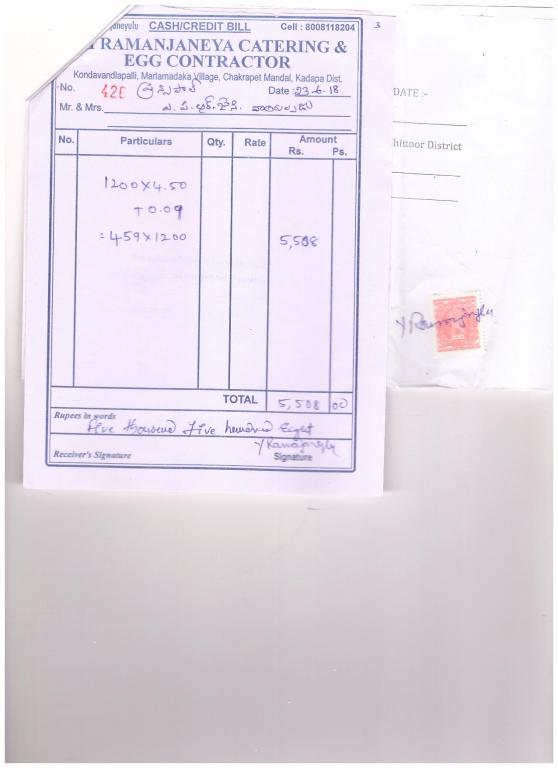 janeyulu CASH/CREDIT BILL Cell : 8008118204
RAMANJANEYA CATERING &
EGG CONTRACTOR
Kondavandlapalli, Marlamadaka Village, Chakrapet Mandal, Kadapa Dist.
No. 426 ప్రిన్సిపాల్ Date : 23-6-18
Mr. & Mrs. ఎ.పి.ఆర్.జె.సి.
No. Particulars Qty. Rate Amount
Rs. Ps.
1200X4.50
+0.09
=459X1200 5,508
TOTAL 5,508 00
Rupees in words
Five thousand Five hundred Eight
Y Ramanjneylu
Receiver's Signature Signature
3
DATE :-
hittoor District
Y Ramanjneylu